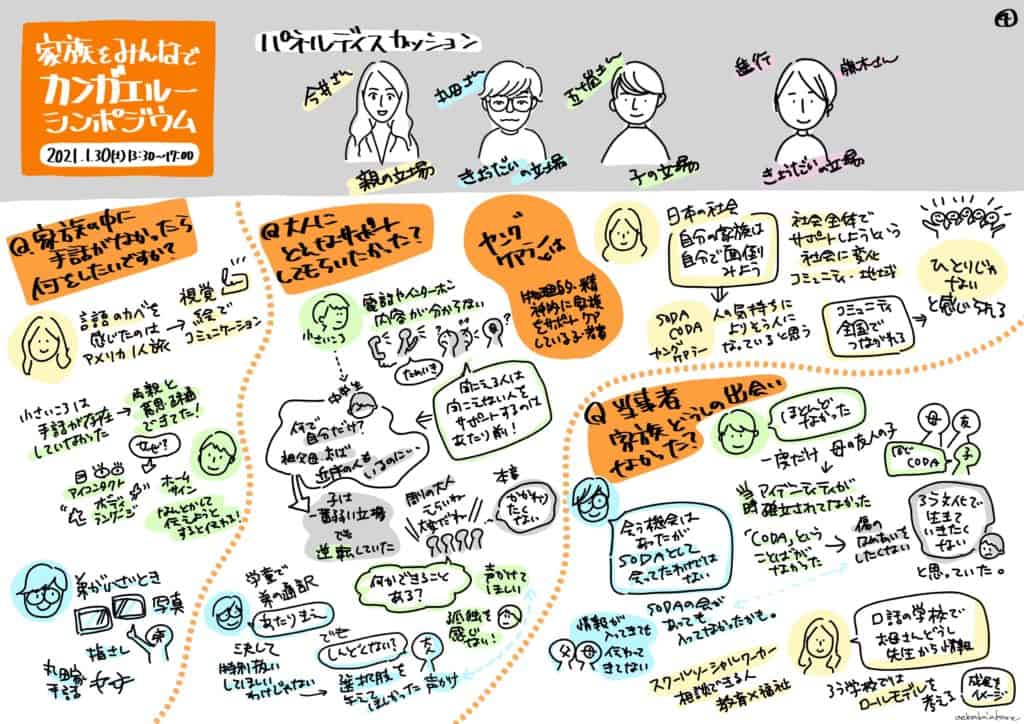 ④
家族をみんなで
カンガエルー
シンポジウム
2021.1.30(土)13:30〜17:00
パネルディスカッション
今井さん
親の立場
丸田さん
きょうだいの立場
五十嵐さん
子の立場
進行
藤木さん
きょうだいの立場
Q.家族の中に
手話がなかったら
何をしたいですか?
言語のカベを
感じたのは
アメリカ1人旅
→
視覚
絵で
コミュニケーション
小さいころは
手話が存在
していなかった
→
両親と
意思疎通
できてた!
なんで?
アイコンタクト
ボディ
ランゲージ
ホーム
サイン
なんとかして
伝えようと
すると伝わる!
弟が小さいとき
写真
指さし
丸田家
手話
Q.大人に
どんなサポート
してもらいたかった?
小さいころ
電話やインターホン
内容が分からない
ためいき
聞こえる人は
聞こえない人を
サポートするのは
あたり前!
中学生
何で
自分だけ?
祖父母、おば
近所の人も
いるのに…
子は
一番弱い立場
でも
逆転していた
周りの大人
えらいね
大変だね
本音
かかわり
たくない
何かできること
ある?
声かけて
ほしい
孤独を
感じない!
学童で
弟の通訳
あたりまえ
決して
特別扱い
してほしい
わけじゃない
でも
しんどくない?
選択肢を
与えて
ほしかった
友
声かけ
ヤング
ケアラーは
物理的・精
神的に家族
をサポート ケア
している子・若者
日本の社会
自分の家族は
自分で面倒
みよう
社会全体で
サポートしようという
社会に変化
コミュニティ・地域
SODA
CODA
ヤングケアラー
→
人の気持ちに
よりそう人に
なっていると思う
コミュニティ
全国で
つながれる
ひとりじゃ
ない
と感じられる
Q.当事者
家族どうしの出会い
なかった?
ほとんど
なかった
一度だけ
→
母の友人の子
母
友
同じ
CODA
子
当時
アイデンティティが
確立されてなかった
「CODA」という
ことばが
なかった
→
傷の
なめあいを
したくない
ろう文化で
生きて
いきたく
ない
と思っていた。
会う機会は
あったが
SODAとして
会ってたわけでは
ない
SODAの会が
あっても
入ってなかったかも。
情報が
入ってきても
伝わって
きてない
父
母
スクールソーシャルワーカー
相談できる人
教育×福祉
口話の学校で
お母さんどうし
先生から情報
ろう学校では
ロールモデルを
考える
成長を
イメージ